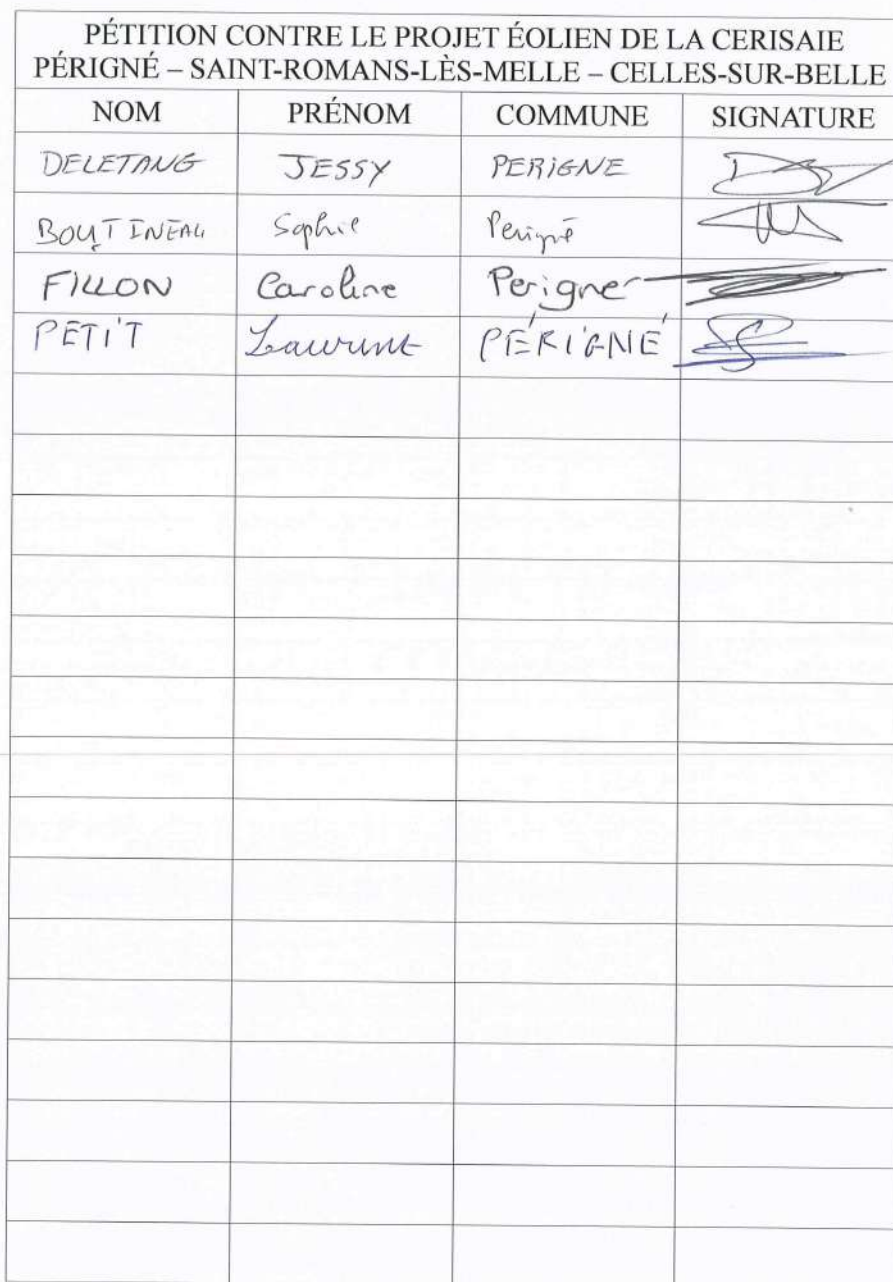 PÉTITION CONTRE LE PROJET ÉOLIEN DE LA CERISAIE
PÉRIGNÉ – SAINT-ROMANS-LÈS-MELLE – CELLES-SUR-BELLE
NOM PRÉNOM COMMUNE SIGNATURE
DELETANG JESSY PERIGNE
BOUTINEAU Sophie Perigné
FILLON Caroline Perigner
PETIT Laurent PÉRIGNÉ